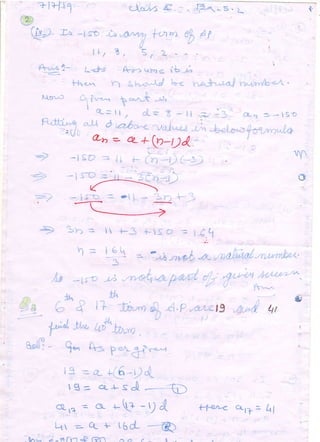 7/7/19 class Ex - 5.2
② Is -150 is any term of AP
11, 8, 5, 2 ...
Ans:- Lets Assume it is
then n should be natural number.
Now Given part is
a=11, d= 8-11 = -3 an = -150
Putting all above values in below formula
an = a + (n-1)d
⇒ -150 = 11 + (n-1)(-3)
⇒ -150 = 11 - 3(n-1)
⇒ -150 = 11 - 3n + 3
⇒ 3n = 11 + 3 + 150 = 164
n = 164/3 = is not a natural number
So -150 is not a part of given
Ans
6th & 17th term of A.P are 19 and 41
find the 40th term.
Sol:- As per given
19 = a + (6-1)d
19 = a + 5d — ①
a17 = a + (17-1)d Here a17 = 41
41 = a + 16d — ②